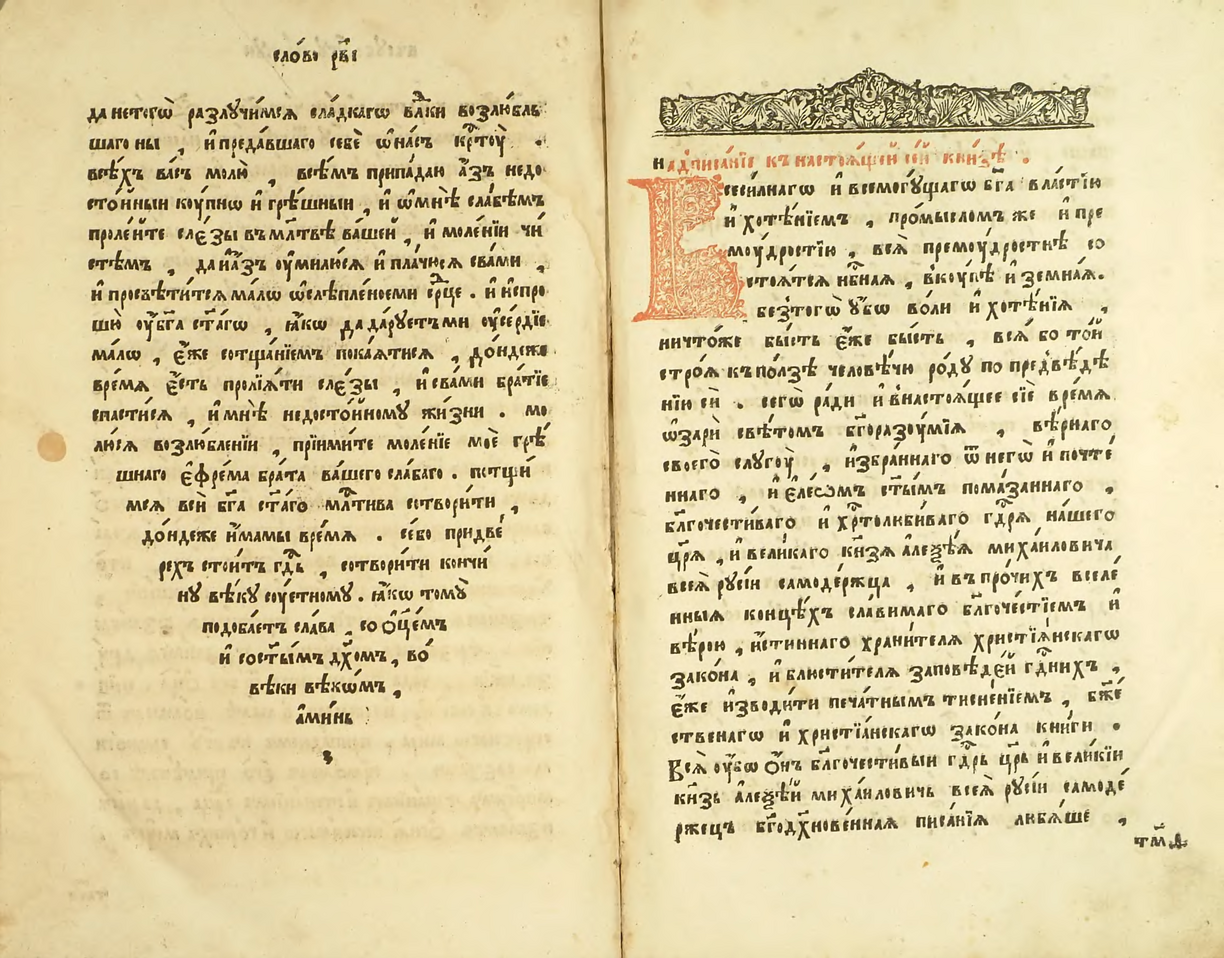 сло́во рв҃і
да нетогѡ̀ разлꙋчи́мсѧ сла́дкагѡ влⷣки возлю́бль
шаго ны̀ , и҆ преда́вшаго себѐ ѡ҆ на́съ кртⷭ҇оу̀ .
всѣ́хъ ва́съ молю̀ , всѣ́мъ припа́даю а҆́зъ недо
сто́йныи коу́пнѡ и҆ грѣ́шныи , и҆ ѡ҆ мнѣ̀ сла́бѣмъ
проле́йте сле́зы въ мл҃твѣ ва́шей , и҆ моле́нїи чи
стѣ́мъ , да и҆ а҆́зъ ᲂу҆милю́сѧ и҆ пла́чюсѧ с ва́ми ,
и҆ просвѣти́тсѧ ма́лѡ ѡ҆слѣпле́ноеми срⷣце . и҆ и҆спро
шю̀ ᲂу҆ бг҃а ст҃а́гѡ , ꙗ҆́кѡ да да́рꙋетъ ми ᲂу҆се́рдїе
ма́лѡ , є҆́же сотща́нїемъ пока́ѧтисѧ , до́ндеже
вре́мѧ є҆́сть пролїѧ́ти сле́зы , и҆ с ва́ми бра́тїе
спасти́сѧ , и҆ мнѣ̀ недосто́йномꙋ жи́зни . мо
лю́сѧ возлю́бленїи , прїими́те моле́нїе моѐ грѣ́
шнаго є҆фре́ма бра́та ва́шего сла́баго . потщи́
мсѧ вси̑ бг҃а ст҃а́го мл҃тива сотвори́ти ,
до́ндеже и҆́мамы вре́мѧ . се́бо при две́
рехъ стои́тъ гдⷭ҇ь , сотвори́ти кончи́
нꙋ вѣ́кꙋ соу́етномꙋ . ꙗ҆́кѡ томꙋ̀
подоба́етъ сла́ва , со ѻ҆ц҃е́мъ
и҆ со ст҃ы́мъ дх҃омъ , во́
вѣ́ки вѣкѡ́мъ ,
а҆ми́нь :
надⸯписа́нїе къ настоѧ́щей се́й кни́зѣ .
Всеси́лнагѡ и҆ всемогꙋ́щагѡ бг҃а вла́стїю
и҆ хотѣ́нїемъ , про́мысломъ же и҆ пре
моу́дростїю , всѧ̑ премоу́дростнѣ со
стоѧ́тсѧ нбⷭ҇наѧ , вкоу́пѣ и҆ земна́ѧ .
безⸯтогѡ̀ ᲂу҆́бѡ во́ли и҆ хотѣ́нїѧ ,
ничто́же бы́сть є҆́же бы́сть , всѧ̑ бо то́й
стро́ѧ къ по́лзѣ человѣ́чю ро́дꙋ по предⸯвѣ́дѣ
нїю си̑ . сегѡ̀ ра́ди и҆ внастоѧ́щее сїѐ вре́мѧ
ѡ҆зарѝ свѣ́томъ бг҃оразоу́мїѧ , вѣ́рнаго
своего̀ слꙋгоу̀ , и҆збра́ннаго ѿ негѡ̀ и҆ почте́
ннаго , и҆ є҆ле́ѡмъ ст҃ы́мъ пома́заннаго ,
бл҃гочести́ваго и҆ хрⷭ҇толюби́ваго гдⷭ҇рѧ на́шего
цр҃ѧ̀ , и҆ вели́каго кн҃зѧ а҆леѯѣ́ѧ миха́иловича
всеѧ̀ рꙋсі́и самоде́ржца , и҆ въ про́чихъ вселе́
нныѧ концѣ́хъ сла́вимаго бл҃гоче́стїемъ и҆
вѣ́рою , и҆́стиннаго храни́телѧ хрїстїѧ́нскагѡ
зако́на , и҆ блюсти́телѧ за́повѣдей гдⷭ҇нихъ ,
є҆́же и҆зводи́ти печа́тнымъ тисне́нїемъ , бж҃е
ственагѡ и҆ хрїстїа́нскагѡ зако́на кни́ги .
Всѧ̑ ᲂу҆́бѡ ѻ҆́нъ бл҃гочести́выи гдⷭ҇рь цр҃ь и҆ вели́кїи
кн҃зь а҆леѯѣ́й миха́иловичь всеѧ̀ рꙋсі́и самоде́
ржецъ бг҃одх҃нове́ннаѧ писа̑нїѧ любѧ́ше ,